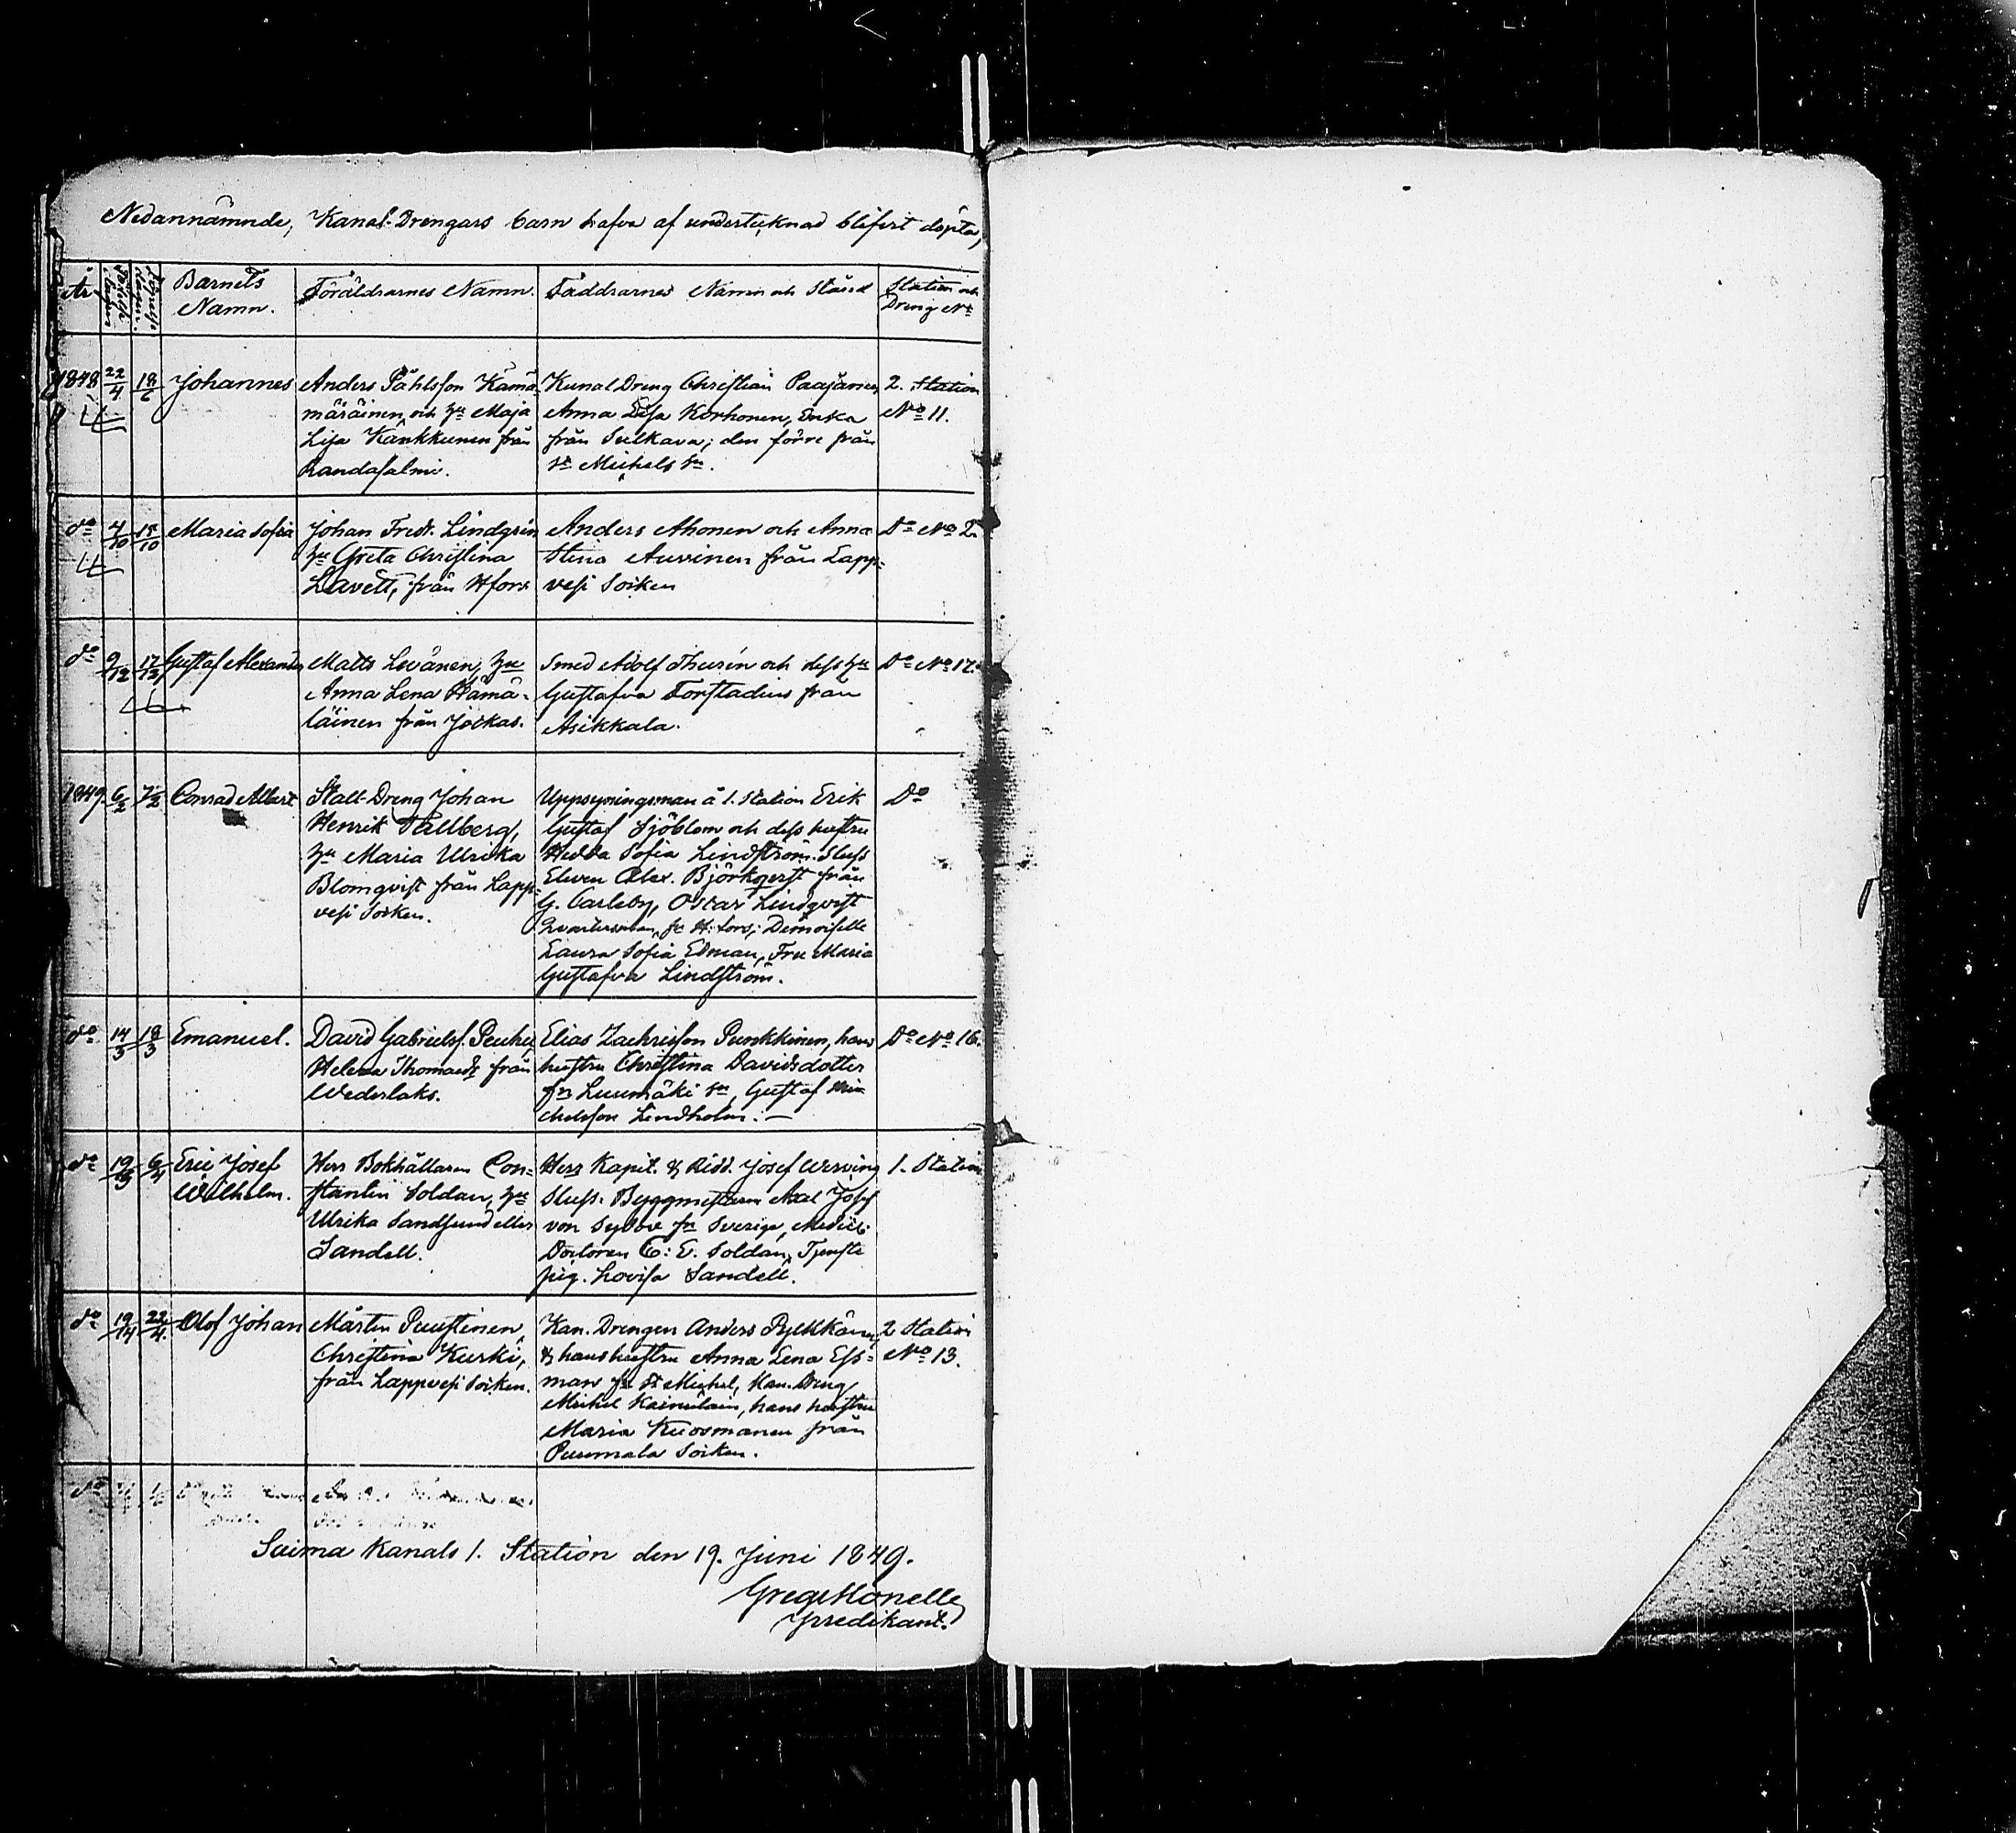 Nedannämnde, Kanal-Drengars barn hafva af undertecknad blifvit döpta,
År
Barnets
Namn.
Föräldrarnes Namn.
Faddrarnes Namn och Stånd
Station och
Dreng No
1848 22/4 18/6 Johannes
Anders Påhlsson Kämä-
märäinen och hu Maja
Lisa Känkkunen från
Randasalmi.
Kanal Dreng Christian Paajanen
Anna Lisa Korhonen, Enka
från Sulkava; den förre från
St Michels Sn.
2. Station
No 11.
do 4/10 15/10 Maria Sofia
Johan Fredr. Lindgrén
hu Greta Christina
Lavett, från Hfors
Anders Ahonen och Anna
Stina Auvinen från Lapp-
vesi Socken
Do No 2.
do 9/12 17/12 Gustaf Alexander
Matts Levänen, hu
Anna Lena Hämä-
läinen från Jockas.
Smed Adolf Thurén och dess hu
Gustafva Forstadius från
Asikkala.
Do No 12.
1849. 6/2 7/2 Conrad Albert
Stall-Dreng Johan
Henrik Tallberg,
hu Maria Ulrika
Blomqvist från Lapp-
vesi Socken.
Uppsyningsman å 1. Station Erik
Gustaf Sjöblom och dess hustru
Hedda Sofia Lindström. Sluss
Eleven Alex. Björkqvist från
G. Carleby, Oscar Lindqvist
fr H:fors; Demoiselle
Laura Sofia Edman, Fru Maria
Gustafva Lindström.
Do
do 14/3 18/3 Emanuel.
David Gabrielss. Peuhu,
Helena Thomasdr från
Wederlaks.
Elias Zachrisson Punkkinen, hans
hustru Christina Davidsdotter
frn Luumäki Sn, Gustaf Mi
chelsson Lindholm. —
Do No 16.
do 19/3 6/4 Eric Josef
Wilhelm.
Herr Bokhållaren Con-
stantin Soldan, hu
Ulrika Sandsund eller
Sandell.
Herr Kapit. & Ridd. Josef Werving
Sluss-Byggmästaren Axel Josef
von Sydow fr Sverige, Medici
Doctoren C: E. Soldan, Tjenste
pig. Lovisa Sandell.
1. Station
do 19/4 22/4 Olof Johan
Mårten Puustinen,
Christina Kurki,
från Lappvesi Socken.
Kan. Drengen Anders Pylkkänen
& hans hustru Anna Lena Ess-
man fr St Michel, Kan. Dreng
Michel Kainulain, hans hustru
Maria Kuosmanen från
Puumala Socken.
2 Station
No 13.
do
Saima Kanals 1. Station den 19. Juni 1849.
Greg. Monelle
Predikant.